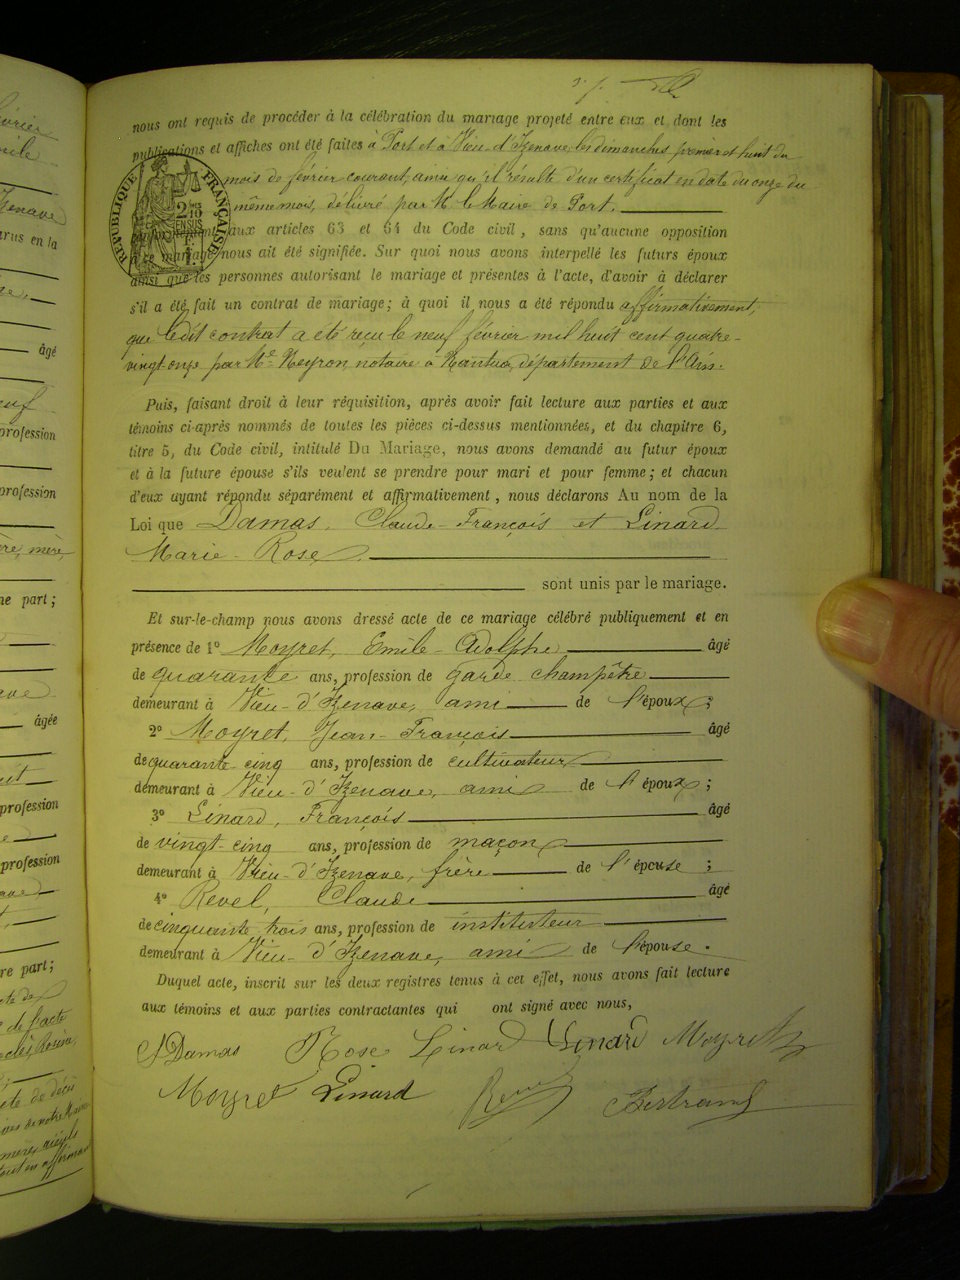 nous ont requis de procéder à la célébration du mariage projeté entre eux et dont les
publications et affiches ont été faites à Port et à Vieu-d'Izenave, les dimanches premier et huit du
mois de février courant, ainsi qu'il résulte d'un certificat en date du onze du
même mois, délivré par M. le Maire de Port.
conformément aux articles 63 et 64 du Code civil, sans qu'aucune opposition
à ce mariage nous ait été signifiée. Sur quoi nous avons interpellé les futurs époux
ainsi que les personnes autorisant le mariage et présentes à l'acte, d'avoir à déclarer
s'il a été fait un contrat de mariage; à quoi il nous a été répondu affirmativement,
que ledit contrat a été reçu le neuf février mil huit cent quatre-
vingt-onze par Me Neyron, notaire à Nantua, département de l'Ain.
Puis, faisant droit à leur réquisition, après avoir fait lecture aux parties et aux
témoins ci-après nommés de toutes les pièces ci-dessus mentionnées, et du chapitre 6,
titre 5, du Code civil, intitulé Du Mariage, nous avons demandé au futur époux
et à la future épouse s'ils veulent se prendre pour mari et pour femme; et chacun
d'eux ayant répondu séparément et affirmativement, nous déclarons Au nom de la
Loi que Damas, Claude-François et Linard
Marie-Rose
sont unis par le mariage.
Et sur-le-champ nous avons dressé acte de ce mariage célébré publiquement et en
présence de 1º Moyret, Emile-Adolphe âgé
de quarante ans, profession de garde champêtre
demeurant à Vieu-d'Izenave, ami de l'époux;
2º Moyret, Jean-François âgé
de quarante cinq ans, profession de cultivateur
demeurant à Vieu-d'Izenave, ami de l'époux;
3º Linard, François âgé
de vingt-cinq ans, profession de maçon
demeurant à Vieu-d'Izenave, frère de l'épouse;
4º Revel, Claude âgé
de cinquante trois ans, profession de instituteur
demeurant à Vieu-d'Izenave, ami de l'épouse.
Duquel acte, inscrit sur les deux registres tenus à cet effet, nous avons fait lecture
aux témoins et aux parties contractantes qui ont signé avec nous,
Damas Rose Linard Linard Moyret
Moyret Linard Revel Bertrand
RÉPUBLIQUE FRANÇAISE
2/10 EN SUS